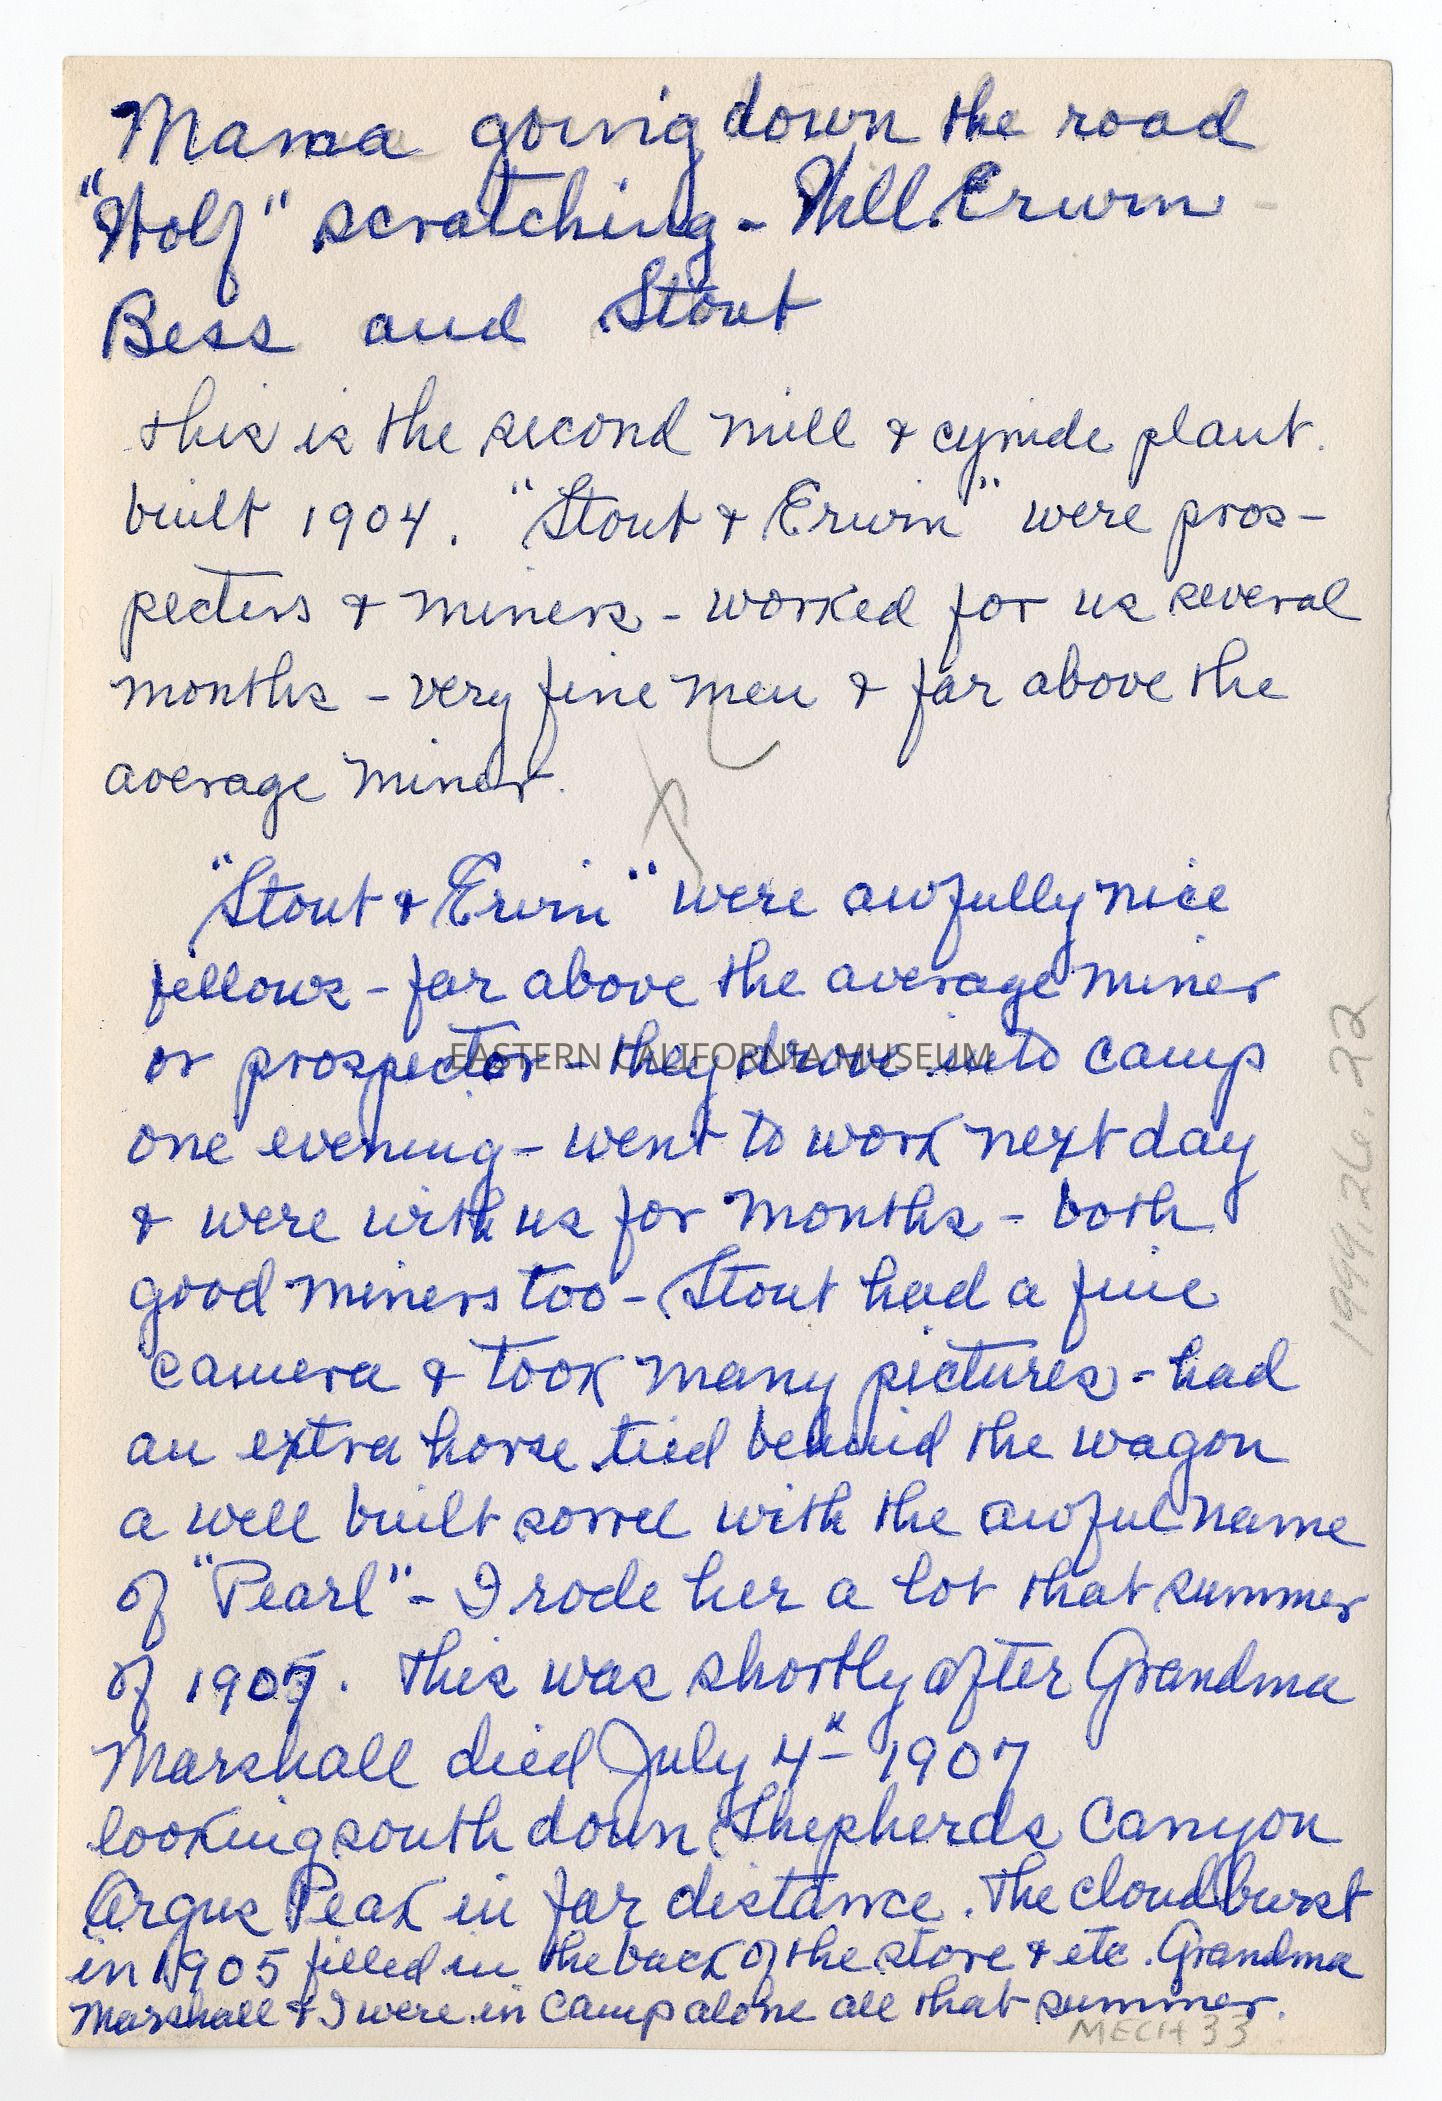 Mama going down the road
"Wolf" scratching - Will Erwin
Bess and Stout
this is the second mill & cynide plant.
built 1904. "Stout & Erwin" were pros-
pecters & miners - worked for us several
months - very fine men & far above the
average miner.
"Stout & Erwin" were awfully nice
fellows - far above the average miner
or prospector - they drove into camp
one evening - went to work next day
& were with us for months - both
good miners too - Stout had a fine
camera & took many pictures - had
an extra horse tied behind the wagon
a well built sorrel with the awful name
of "Pearl" - I rode her a lot that summer
of 1907. This was shortly after Grandma
Marshall died July 4th 1907
looking south down Shepherds Canyon
Argus Peak in far distance. The cloudburst
in 1905 filled in the back of the store & etc. Grandma
Marshall & I were in camp alone all that summer.
MECH 33
1999.26.22
EASTERN CALIFORNIA MUSEUM